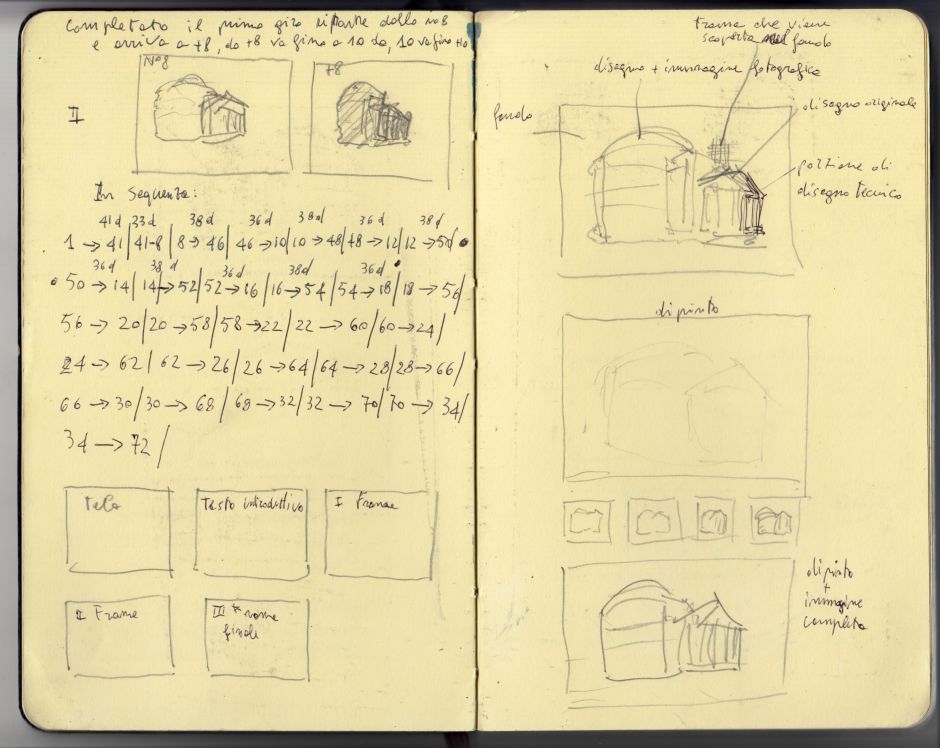 Completato il primo giro riparte dalla no8
e arriva a +8, da +8 va fino a 10 da, 10 va fino
No8
+8
II
In sequenza:
41d 33d 38d 36d 38d 36d 38d
1 → 41 / 41-8 / 8 → 46 / 46 → 10 / 10 → 48 / 48 → 12 / 12 → 50 /
36d 38d 36d 38d 36d
50 → 14 / 14 → 52 / 52 → 16 / 16 → 54 / 54 → 18 / 18 → 56 /
56 → 20 / 20 → 58 / 58 → 22 / 22 → 60 / 60 → 24 /
24 → 62 / 62 → 26 / 26 → 64 / 64 → 28 / 28 → 66 /
66 → 30 / 30 → 68 / 68 → 32 / 32 → 70 / 70 → 34 /
34 → 72 /
Tela
Testo introduttivo
I Frame
II Frame
III Frame
finale
trama che viene
scoperta nel fondo
disegno + immagine fotografica
fondo
disegno originale
porzione di
disegno tecnico
dipinto
dipinto
+
immagine
completa